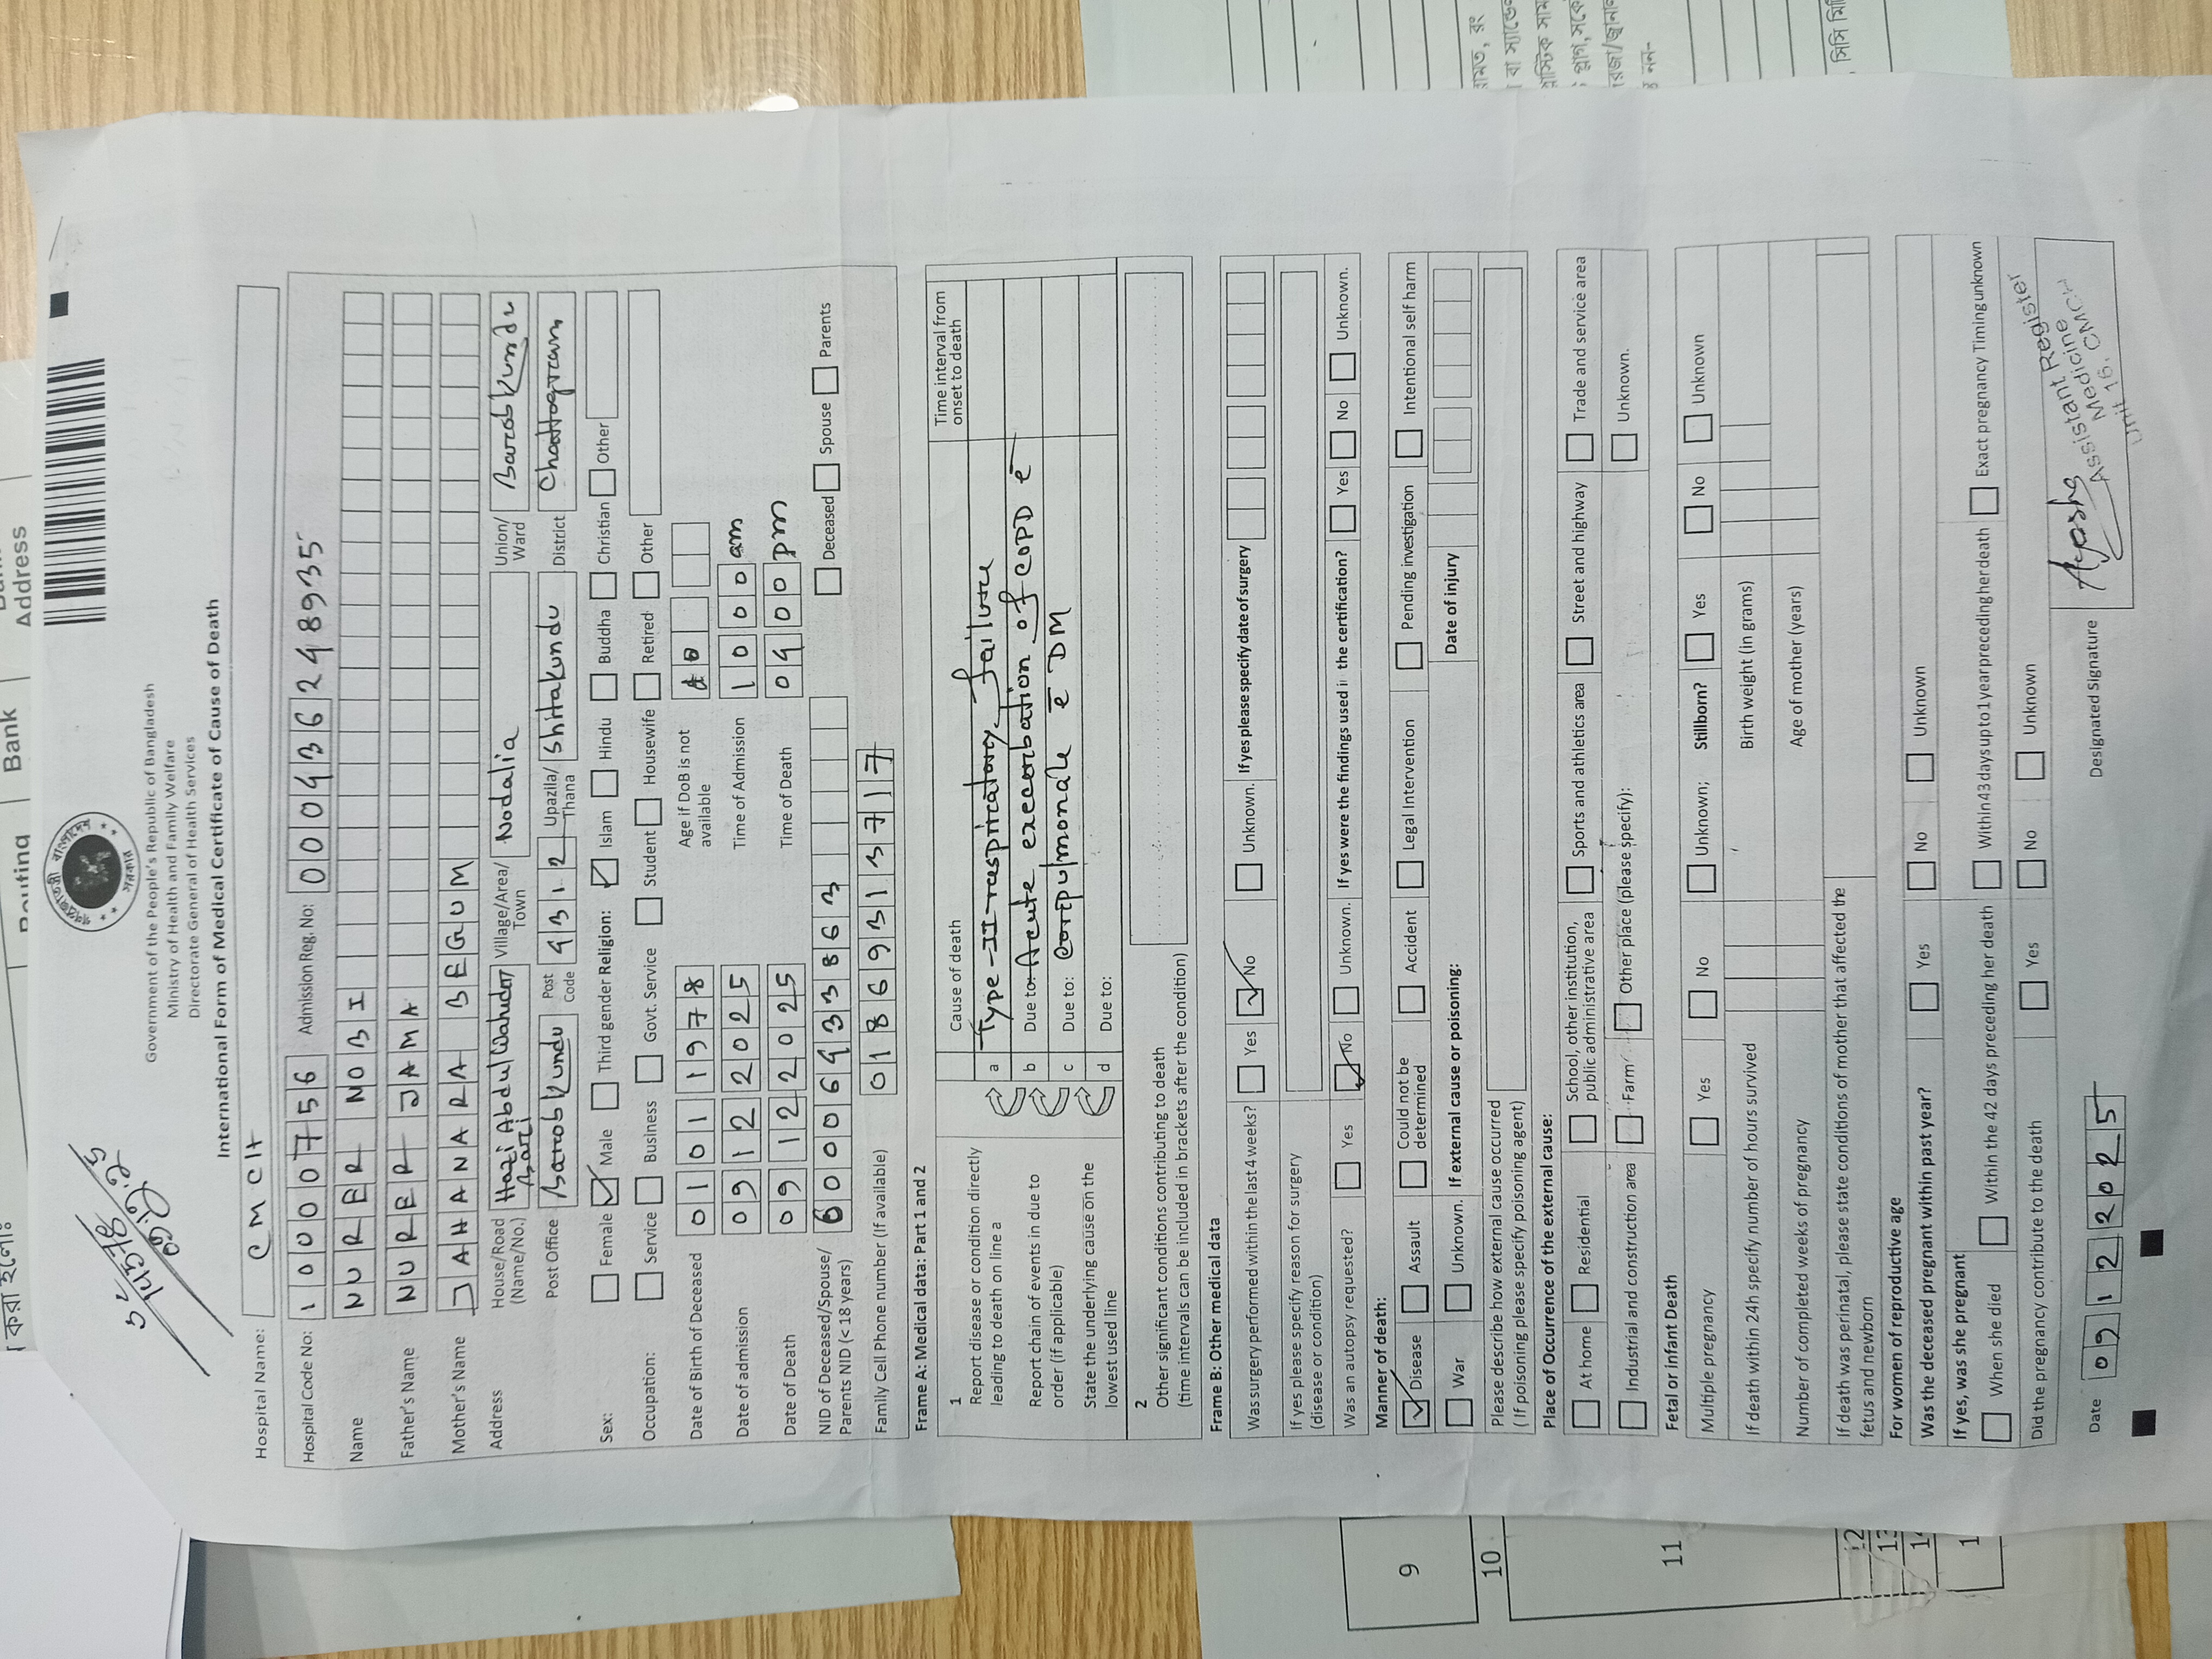 Government of the People's Republic of Bangladesh
Ministry of Health and Family Welfare
Directorate General of Health Services
International Form of Medical Certificate of Cause of Death
Hospital Name: CMCH
Hospital Code No: 10000756 Admission Reg. No: 000436248935
Name NURER NOBI
Father's Name NURER JAMA
Mother's Name JAHANARA BEGUM
Address House/Road (Name/No.) Hazi Abdul Wahudor Bari Village/Area/Town Nodalia Union/Ward Barobkundu
Post Office Barobkundu Post Code 4312 Upazila/Thana Shitakundu District Chattogram
Sex: Female Male Third gender Religion: Islam Hindu Buddha Christian Other
Occupation: Service Business Govt. Service Student Housewife Retired Other
Date of Birth of Deceased 01011978 Age if DoB is not available
Date of admission 09122025 Time of Admission 1000 am
Date of Death 09122025 Time of Death 0400 pm
NID of Deceased/Spouse/Parents NID (< 18 years) 6000643863 Deceased Spouse Parents
Family Cell Phone number (If available) 01869313717
Frame A: Medical data: Part 1 and 2
1 Cause of death Time interval from onset to death
Report disease or condition directly leading to death on line a
a Type-II respiratory failure
Report chain of events in due to order (if applicable)
b Due to: Acute exacerbation of COPD c̄
c Due to: Corpulmonale c̄ DM
State the underlying cause on the lowest used line
d Due to:
2
Other significant conditions contributing to death
(time intervals can be included in brackets after the condition)
Frame B: Other medical data
Was surgery performed within the last 4 weeks? Yes No Unknown. If yes please specify date of surgery
If yes please specify reason for surgery (disease or condition)
Was an autopsy requested? Yes No Unknown. If yes were the findings used in the certification? Yes No Unknown.
Manner of death:
Disease Assault Could not be determined Accident Legal Intervention Pending investigation Intentional self harm
War Unknown. If external cause or poisoning: Date of injury
Please describe how external cause occurred
( If poisoning please specify poisoning agent)
Place of Occurrence of the external cause:
At home Residential School, other institution, public administrative area Sports and athletics area Street and highway Trade and service area
Industrial and construction area Farm Other place (please specify): Unknown.
Fetal or infant Death
Multiple pregnancy Yes No Unknown; Stillborn? Yes No Unknown
If death within 24h specify number of hours survived Birth weight (in grams)
Number of completed weeks of pregnancy Age of mother (years)
If death was perinatal, please state conditions of mother that affected the fetus and newborn
For women of reproductive age
Was the deceased pregnant within past year? Yes No Unknown
If yes, was she pregnant
When she died Within the 42 days preceding her death Within 43 days up to 1 year preceding her death Exact pregnancy Timing unknown
Did the pregnancy contribute to the death Yes No Unknown
Date 09122025 Designated Signature Ayesha
Assistant Register
Medicine
Unit 16. CMCH
Routing
Bank
Address
9
10
11
12
13